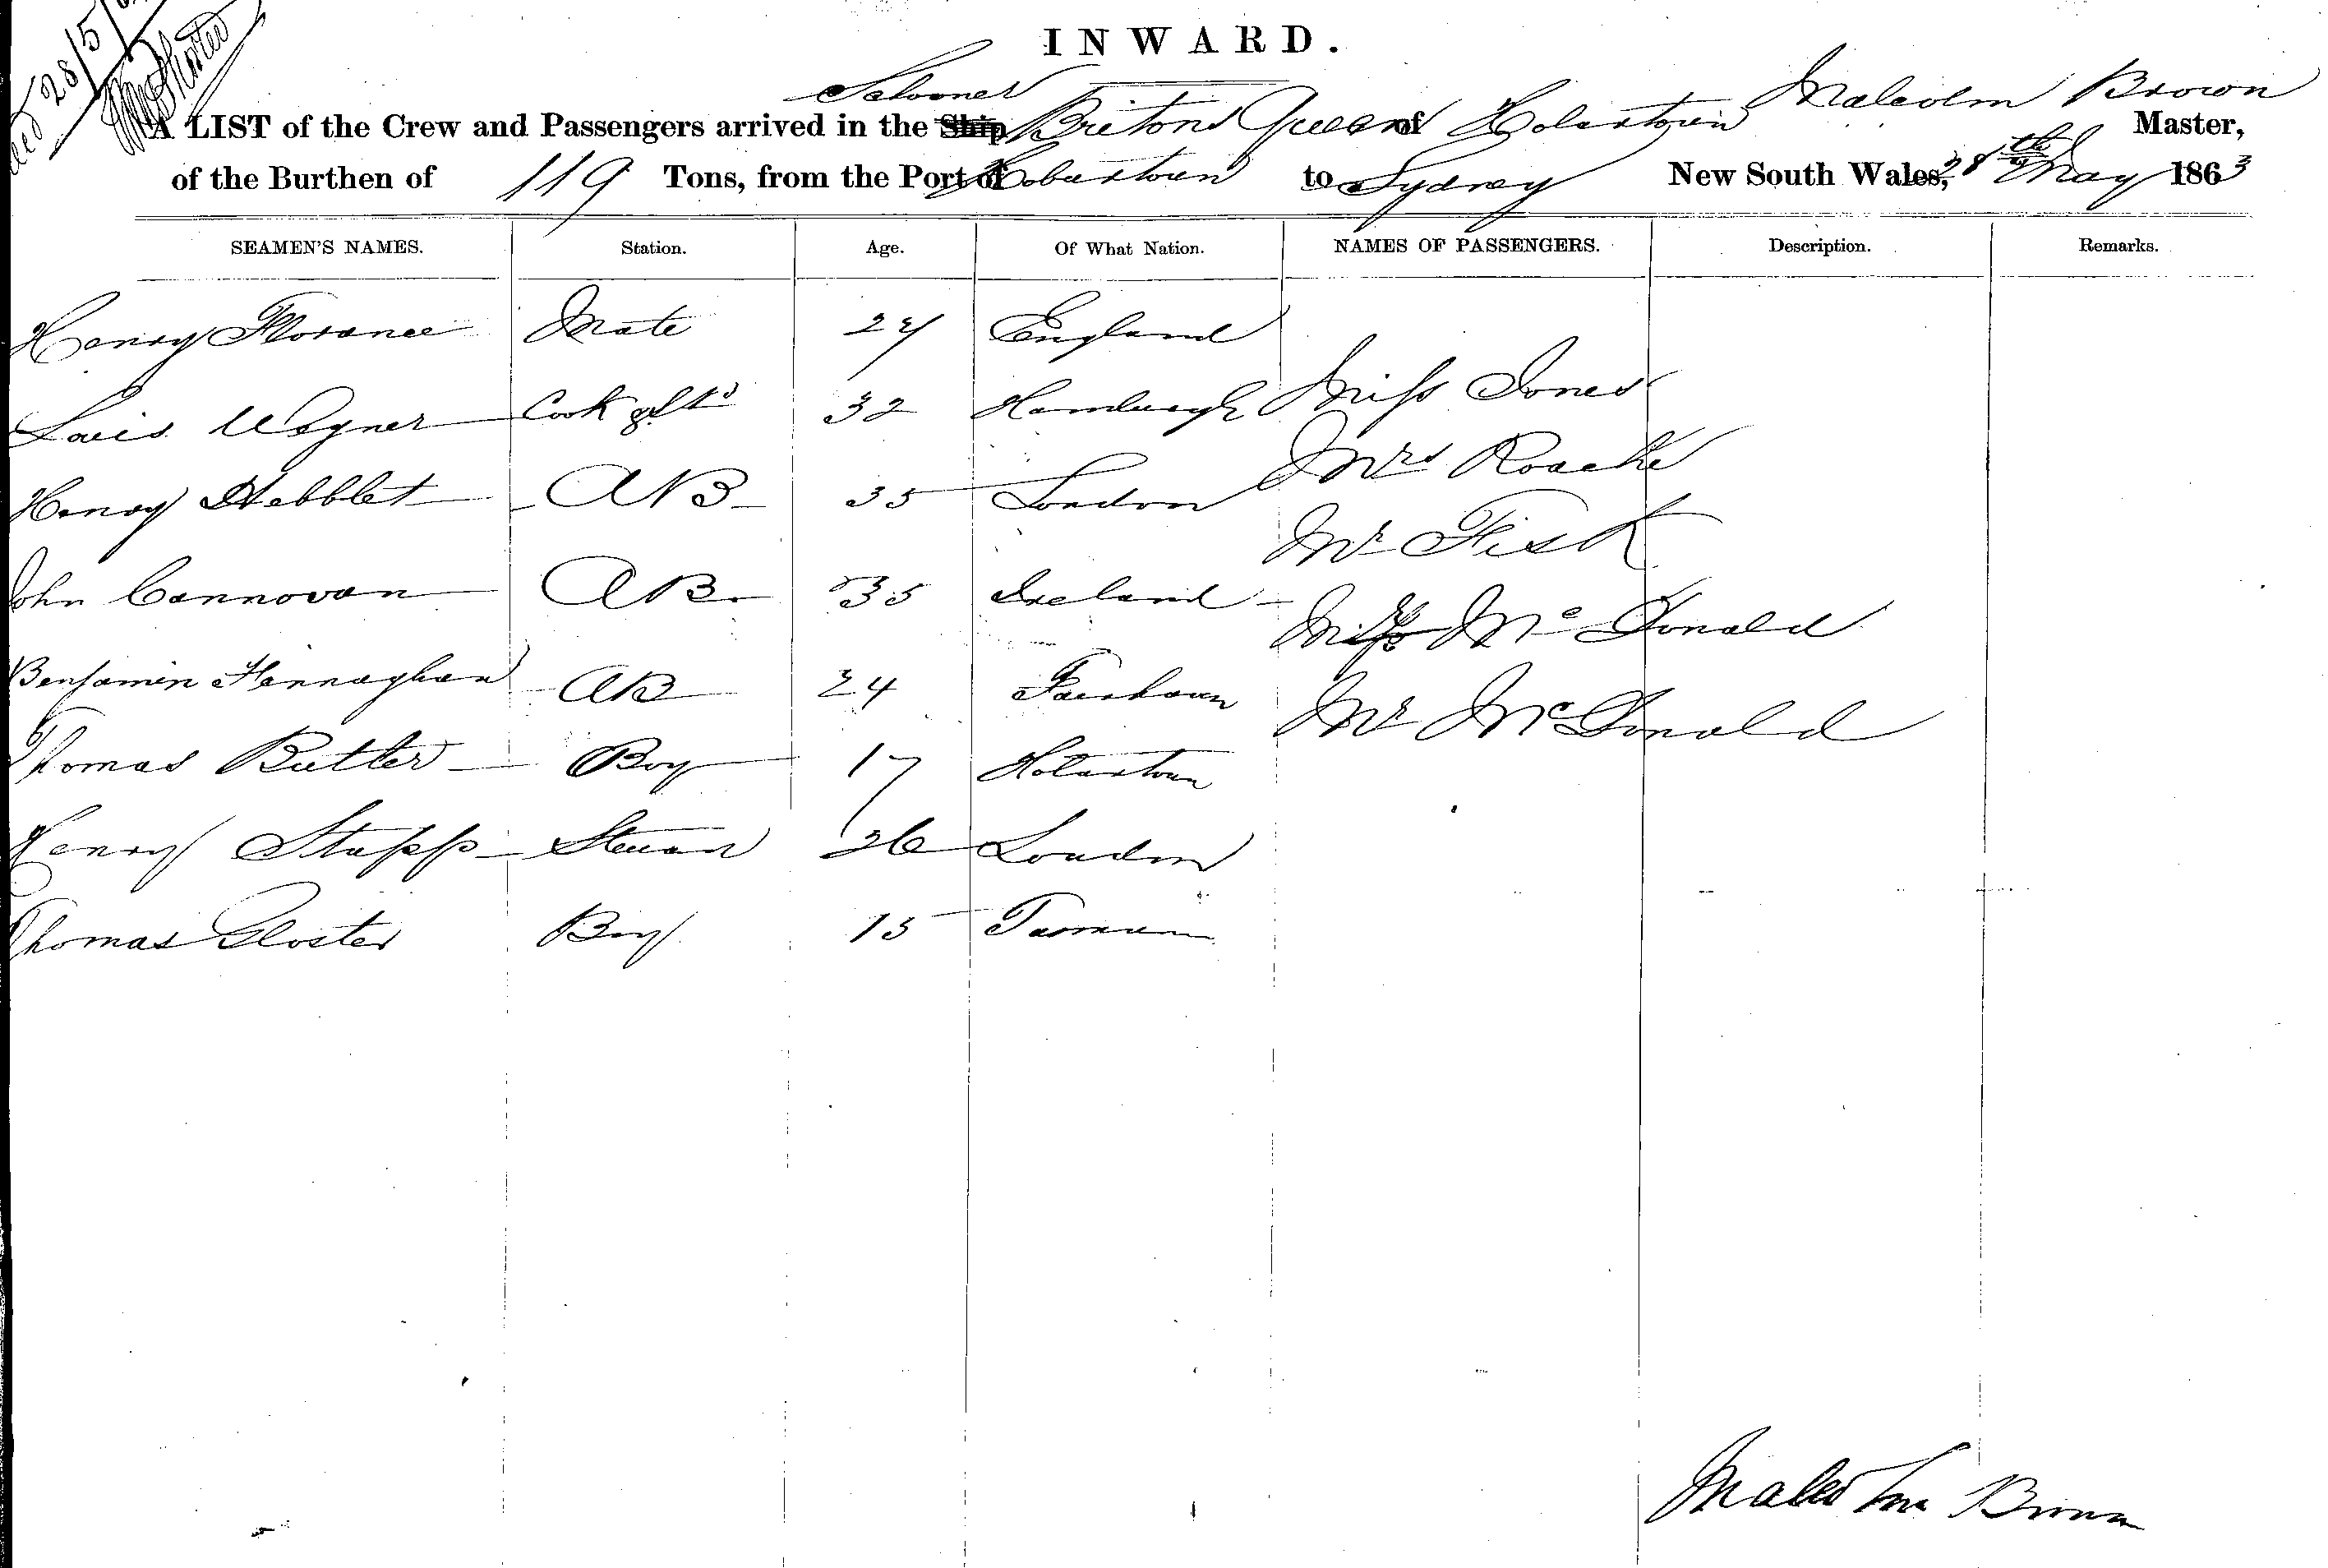 28/5/
INWARD.
Schooner
Malcolm Brown
A LIST of the Crew and Passengers arrived in the Ship Britons Queen of Hobartown Master,
of the Burthen of 119 Tons, from the Port of Hobartown to Sydney New South Wales, 28th May 1863
SEAMEN'S NAMES. Station. Age. Of What Nation. NAMES OF PASSENGERS. Description. Remarks.
Henry Florance Mate 24 England
Louis Wagner Cook 32 Hamburgh Miss Jones
Mrs Roache
Henry Hebblet AB 35 London
Mr Fisk
John Cannovan AB 35 Ireland
McDonald
Benjamin Hannaghan AB 24 Fairhaven
Mr McDonald
Thomas Butler Boy 17 Hobartown
Henry Stapp Steuard 26 London
Thomas Gloster Boy 15
Malcolm Brown